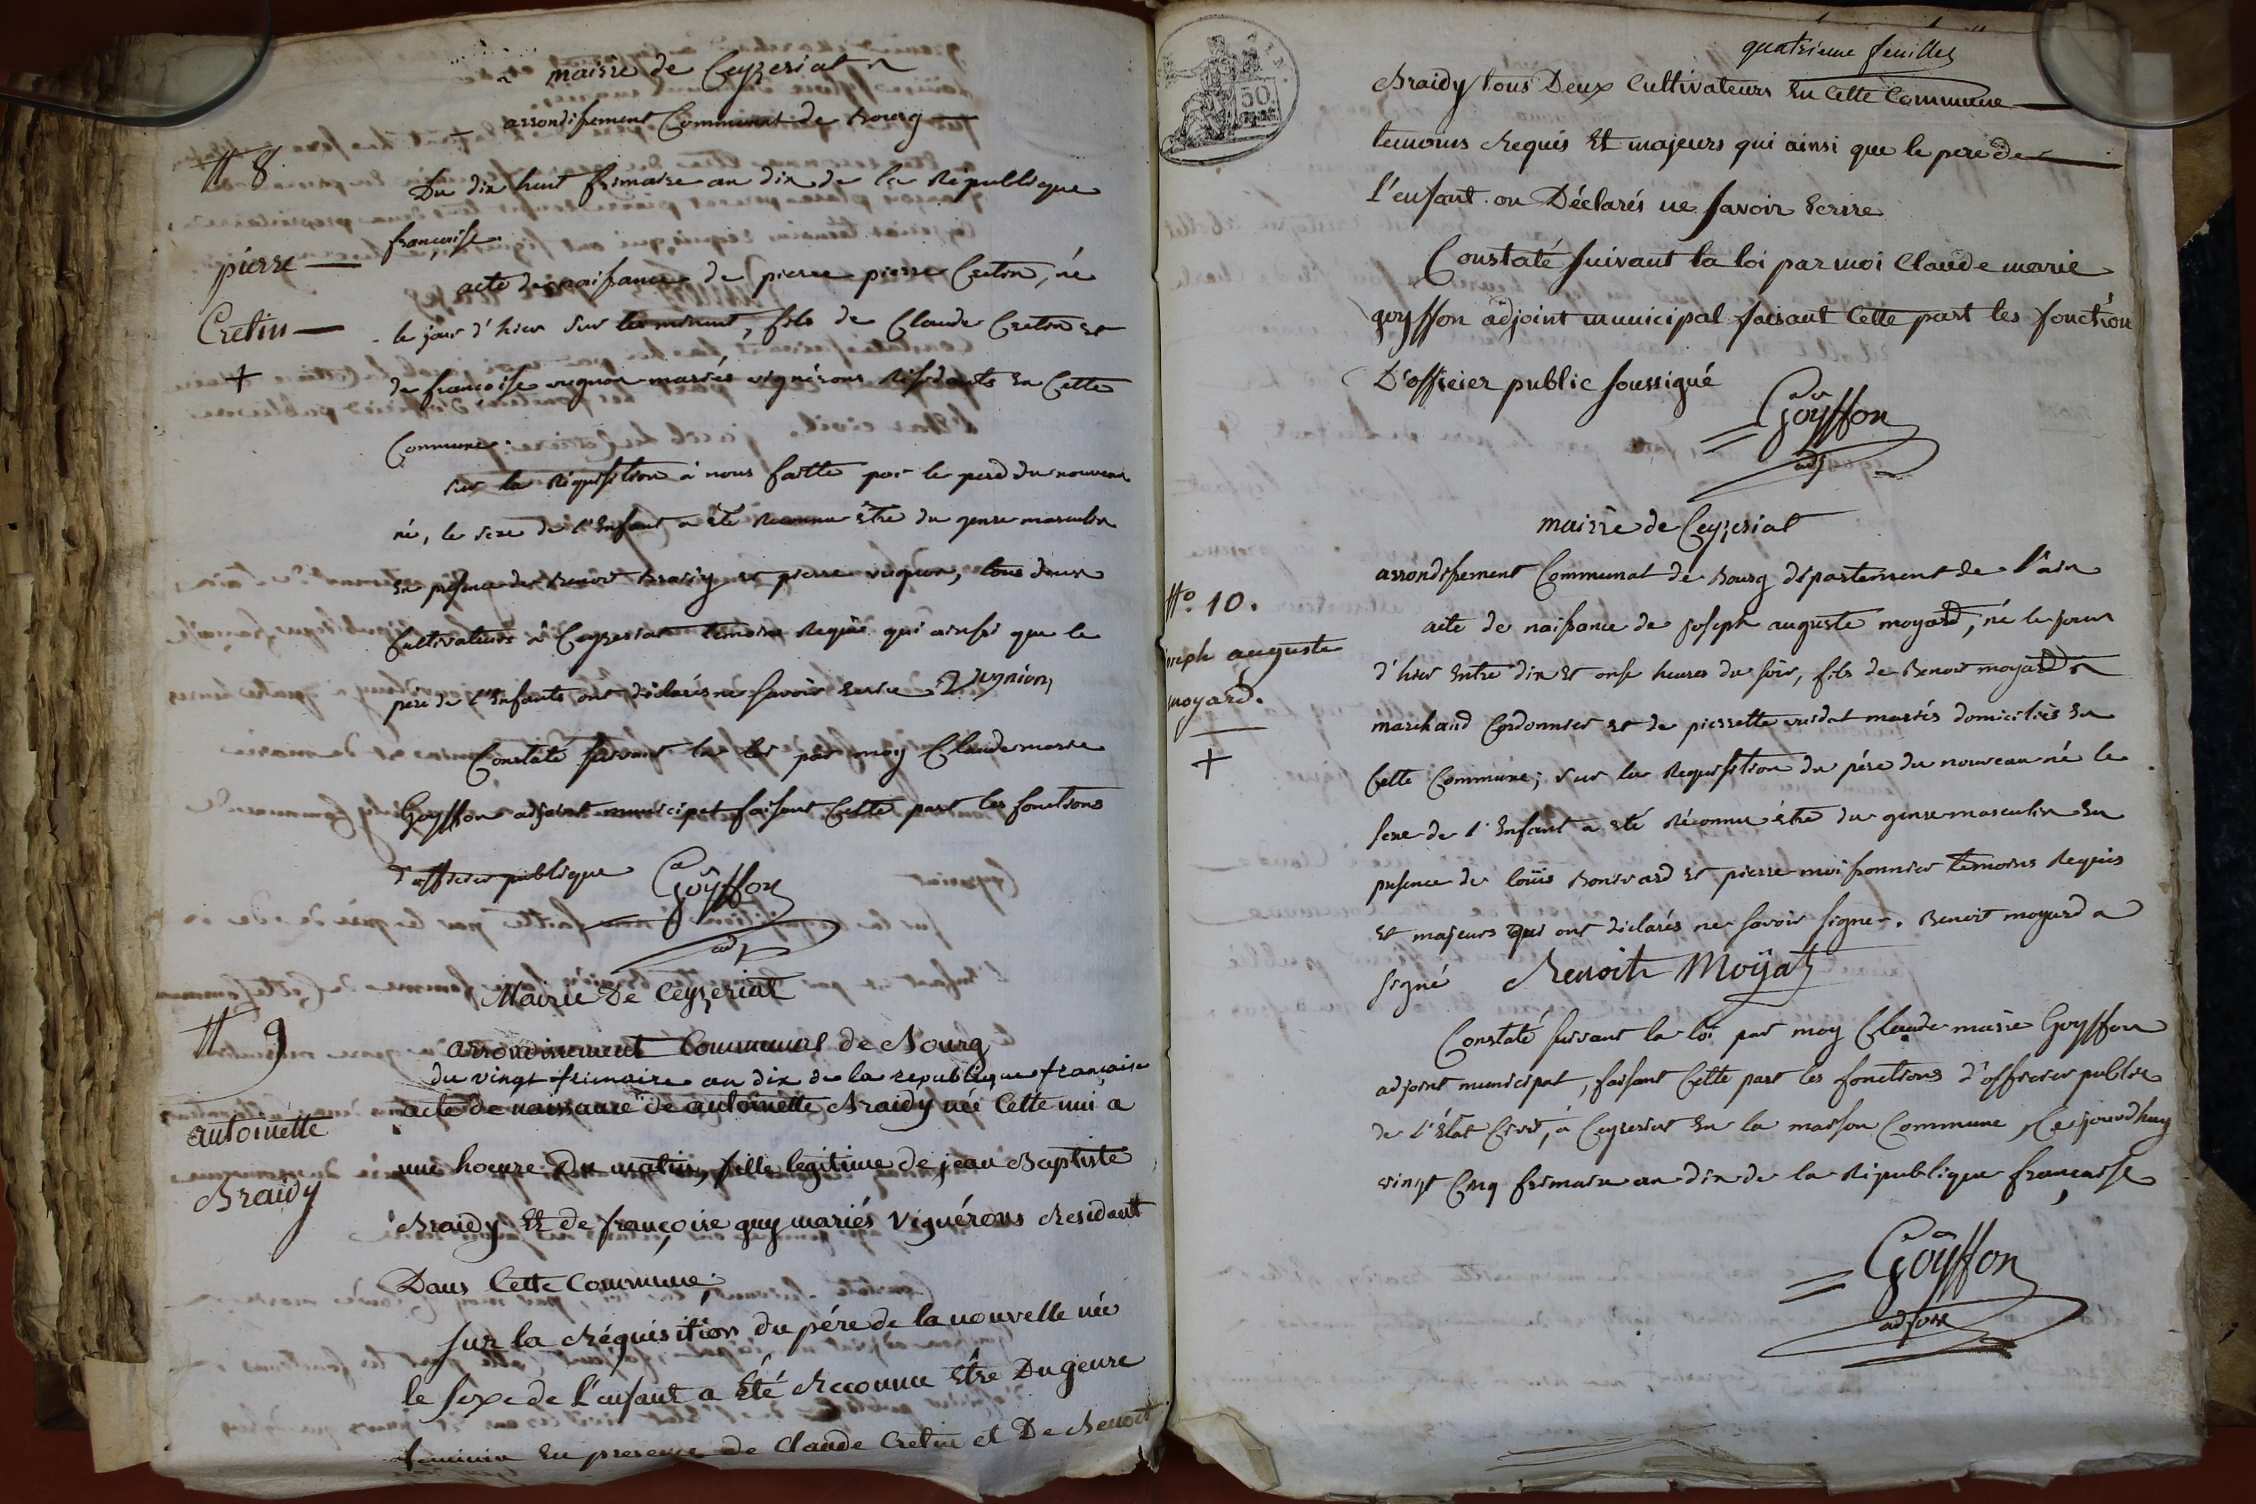 mairie de Ceyzeriat
arrondissement Communal de Bourg
N 8
Du dix huit frimaire an dix de la Republique
française.
pierre
Cretin
+
acte de naissance de pierre pierre Cretin, né
le jour d'hier sur les minuit, fils de Claude Cretin et
de françoise vugnon mariés vignérons Résidants En Cette
Commune.
sur la Réquisition à nous faitte par le pere du nouveau
né, le sexe de l'Enfant a Eté Reconnu Être du genre masculin
En présence de Benoit Braidy et pierre vugnon, tous deux
Cultivateurs à Ceyzeriat temoins Requis qui ainsi que le
pere de l'Enfants ont déclarés ne savoir Ecrire
Constaté suivant la loi par moy Claude marie
Goyffon adjoint municipal faisant Cette part les fonctions
d'officier publique Goÿffon
adj
Mairie De Ceyzeriat
N 9
arrondissement Communal de Bourg
du vingt frimaire an dix de la republique française
antoinette
Braidy
acte de naissance de antoinette Braidy née Cette nui a
une hoeure Du matin, fille legitime de jean Baptiste
Braidy Et de françoise guy mariés vignérons Residant
Dans Cette Commune;
sur la Réquisition du pére de la nouvelle née
le sexe de l'enfant a Été Reconnu Être Du genre
feminin En presence de Claude Cretin et De Benoit
quatrieme feuillet
30
Braidy tous Deux Cultivateurs En Cette Commune
temoins Requis Et majeurs qui ainsi que le pere de
l'enfant on Déclarés ne savoir Ecrire
Constaté suivant la loi par moi Claude marie
goyffon adjoint municipal faisant Cette part les fonction
D'officier public soussigné
Goÿffon
adj
mairie de Ceyzeriat
arrondissement Communal de Bourg département de l'ain
No 10.
joseph auguste
moyard.
+
acte de naissance de joseph auguste moyard, né le jour
d'hier Entre dix Et onse heures du soir, fils de Benoit moyard
marchand Cordonnier et de pierrette vuidat mariés domiciliés En
Cette Commune; sur la Requisition du pére du nouveau né le
sexe de l'Enfant a eté Réconnu étre du genre masculin En
présence de loüis Bonivard Et pierre moissonnier temoins Requis
Et majeurs qui ont déclarés ne savoir signer. Benoit moyard a
signé Benoit Moÿat
Constaté suivant la loi par moy Claude marie Goyffon
adjoint municipal, faisant Cette part les fonctions d'officier public
de l'État Civil, à Ceyzeriat En la maison Commune, Ce jourd'huy
vingt Cinq frimaire an dix de la République française
Goÿffon
adjoint